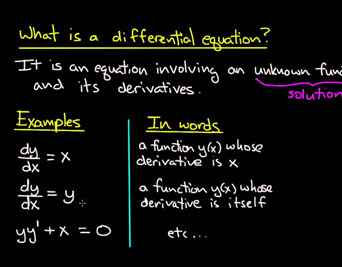 What is a differential equation?
It is an equation involving an unknown
and its derivatives.
solution
Examples
In words
dy/dx = x
a function y(x) whose
derivative is x
dy/dx = y
a function y(x) whose
derivative is itself
yy' + x = 0
etc...